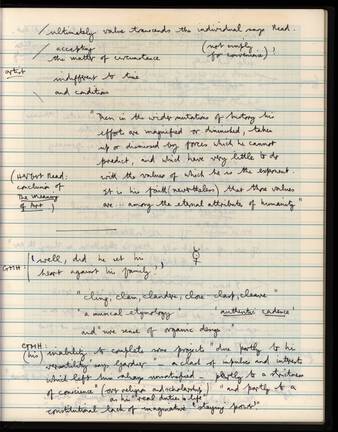 / ultimately value transcends the individual says Read.
/ accepting (not simply
the matter of circumstance for convenience)
artist
indifferent to time
and condition
"Then in the wider mutations of history his
effort are magnified or diminished, taken
up or dismissed by forces which he cannot
predict, and which have very little to do
(Herbert Read: with the values of which he is the exponent.
conclusion of It is his faith (nevertheless) that those values
The Meaning are among the eternal attributes of humanity"
of Art)
GMH: "well, did he set his
heart against his family,"
"cling, clam, clander, close clasp, cleave"
"a musical etymology authentic cadence
and "we sense of organic design"
GMH:
(his) inability to complete some projects "due partly to his
versatility says Gardner - a clash of impulses and interests
which left him always unsatisfied - partly to a strictness
of conscience" (over religion and scholarship) "and partly to a
as his "real duties in life"
constitutional lack of imaginative 'staying power'."